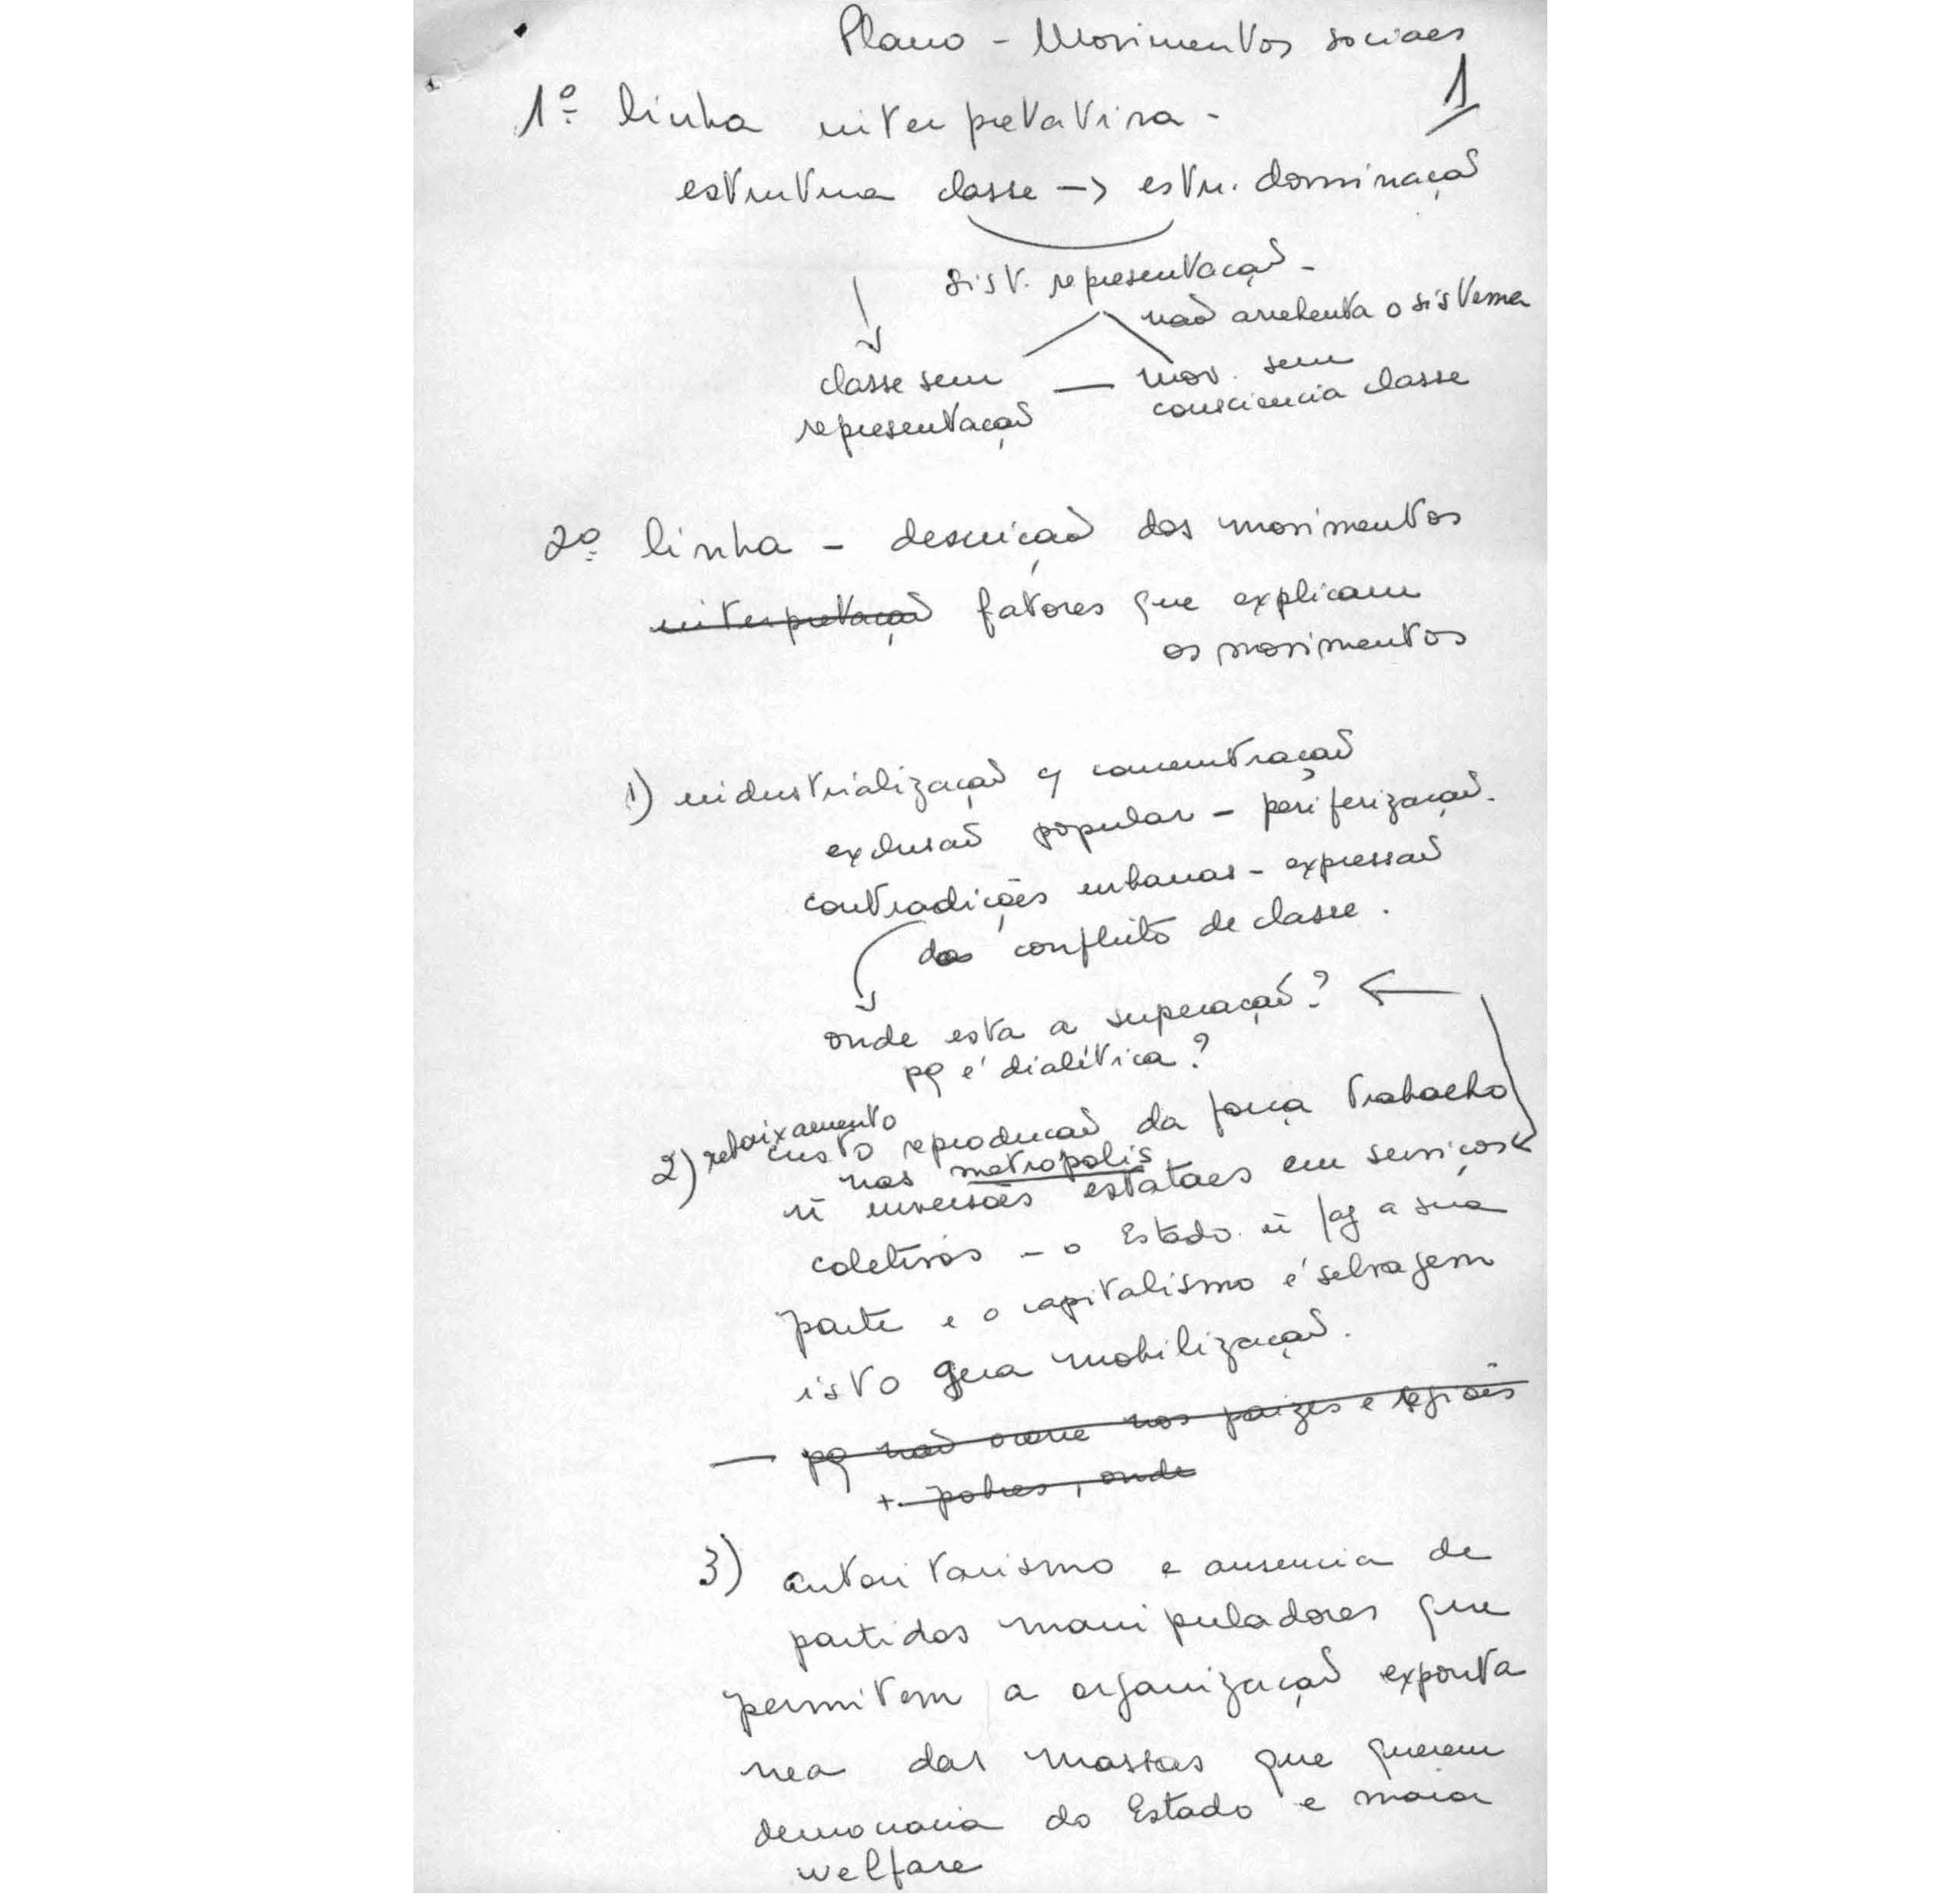 Plano - Movimentos sociaes
1
1º linha interpretativa -
estrutura classe -> estru. dominação
sist. representação -
não arrebenta o sistema
classe sem — mov. sem
representação consciencia classe
2º linha - descrição dos movimentos
interpretação fatores que explicam
os movimentos
1) industrialização c/ concentração
exclusão popular - periferização.
contradições urbanas - expressão
do conflito de classe.
onde esta a superação?
pq é dialética?
2) rebaixamento
custo reprodução da força trabalho
nas metropolis
ñ inversões estataes em serviços
coletivos - o Estado ñ faz a sua
parte e o capitalismo é selvagem
isto gera mobilização.
— pq não ocorre nos paizes e regiões
+ pobres, onde
3) autoritarismo e ausencia de
partidos manipuladores que
permitem a organização exponta
nea das massas que querem
democracia do Estado e maior
welfare